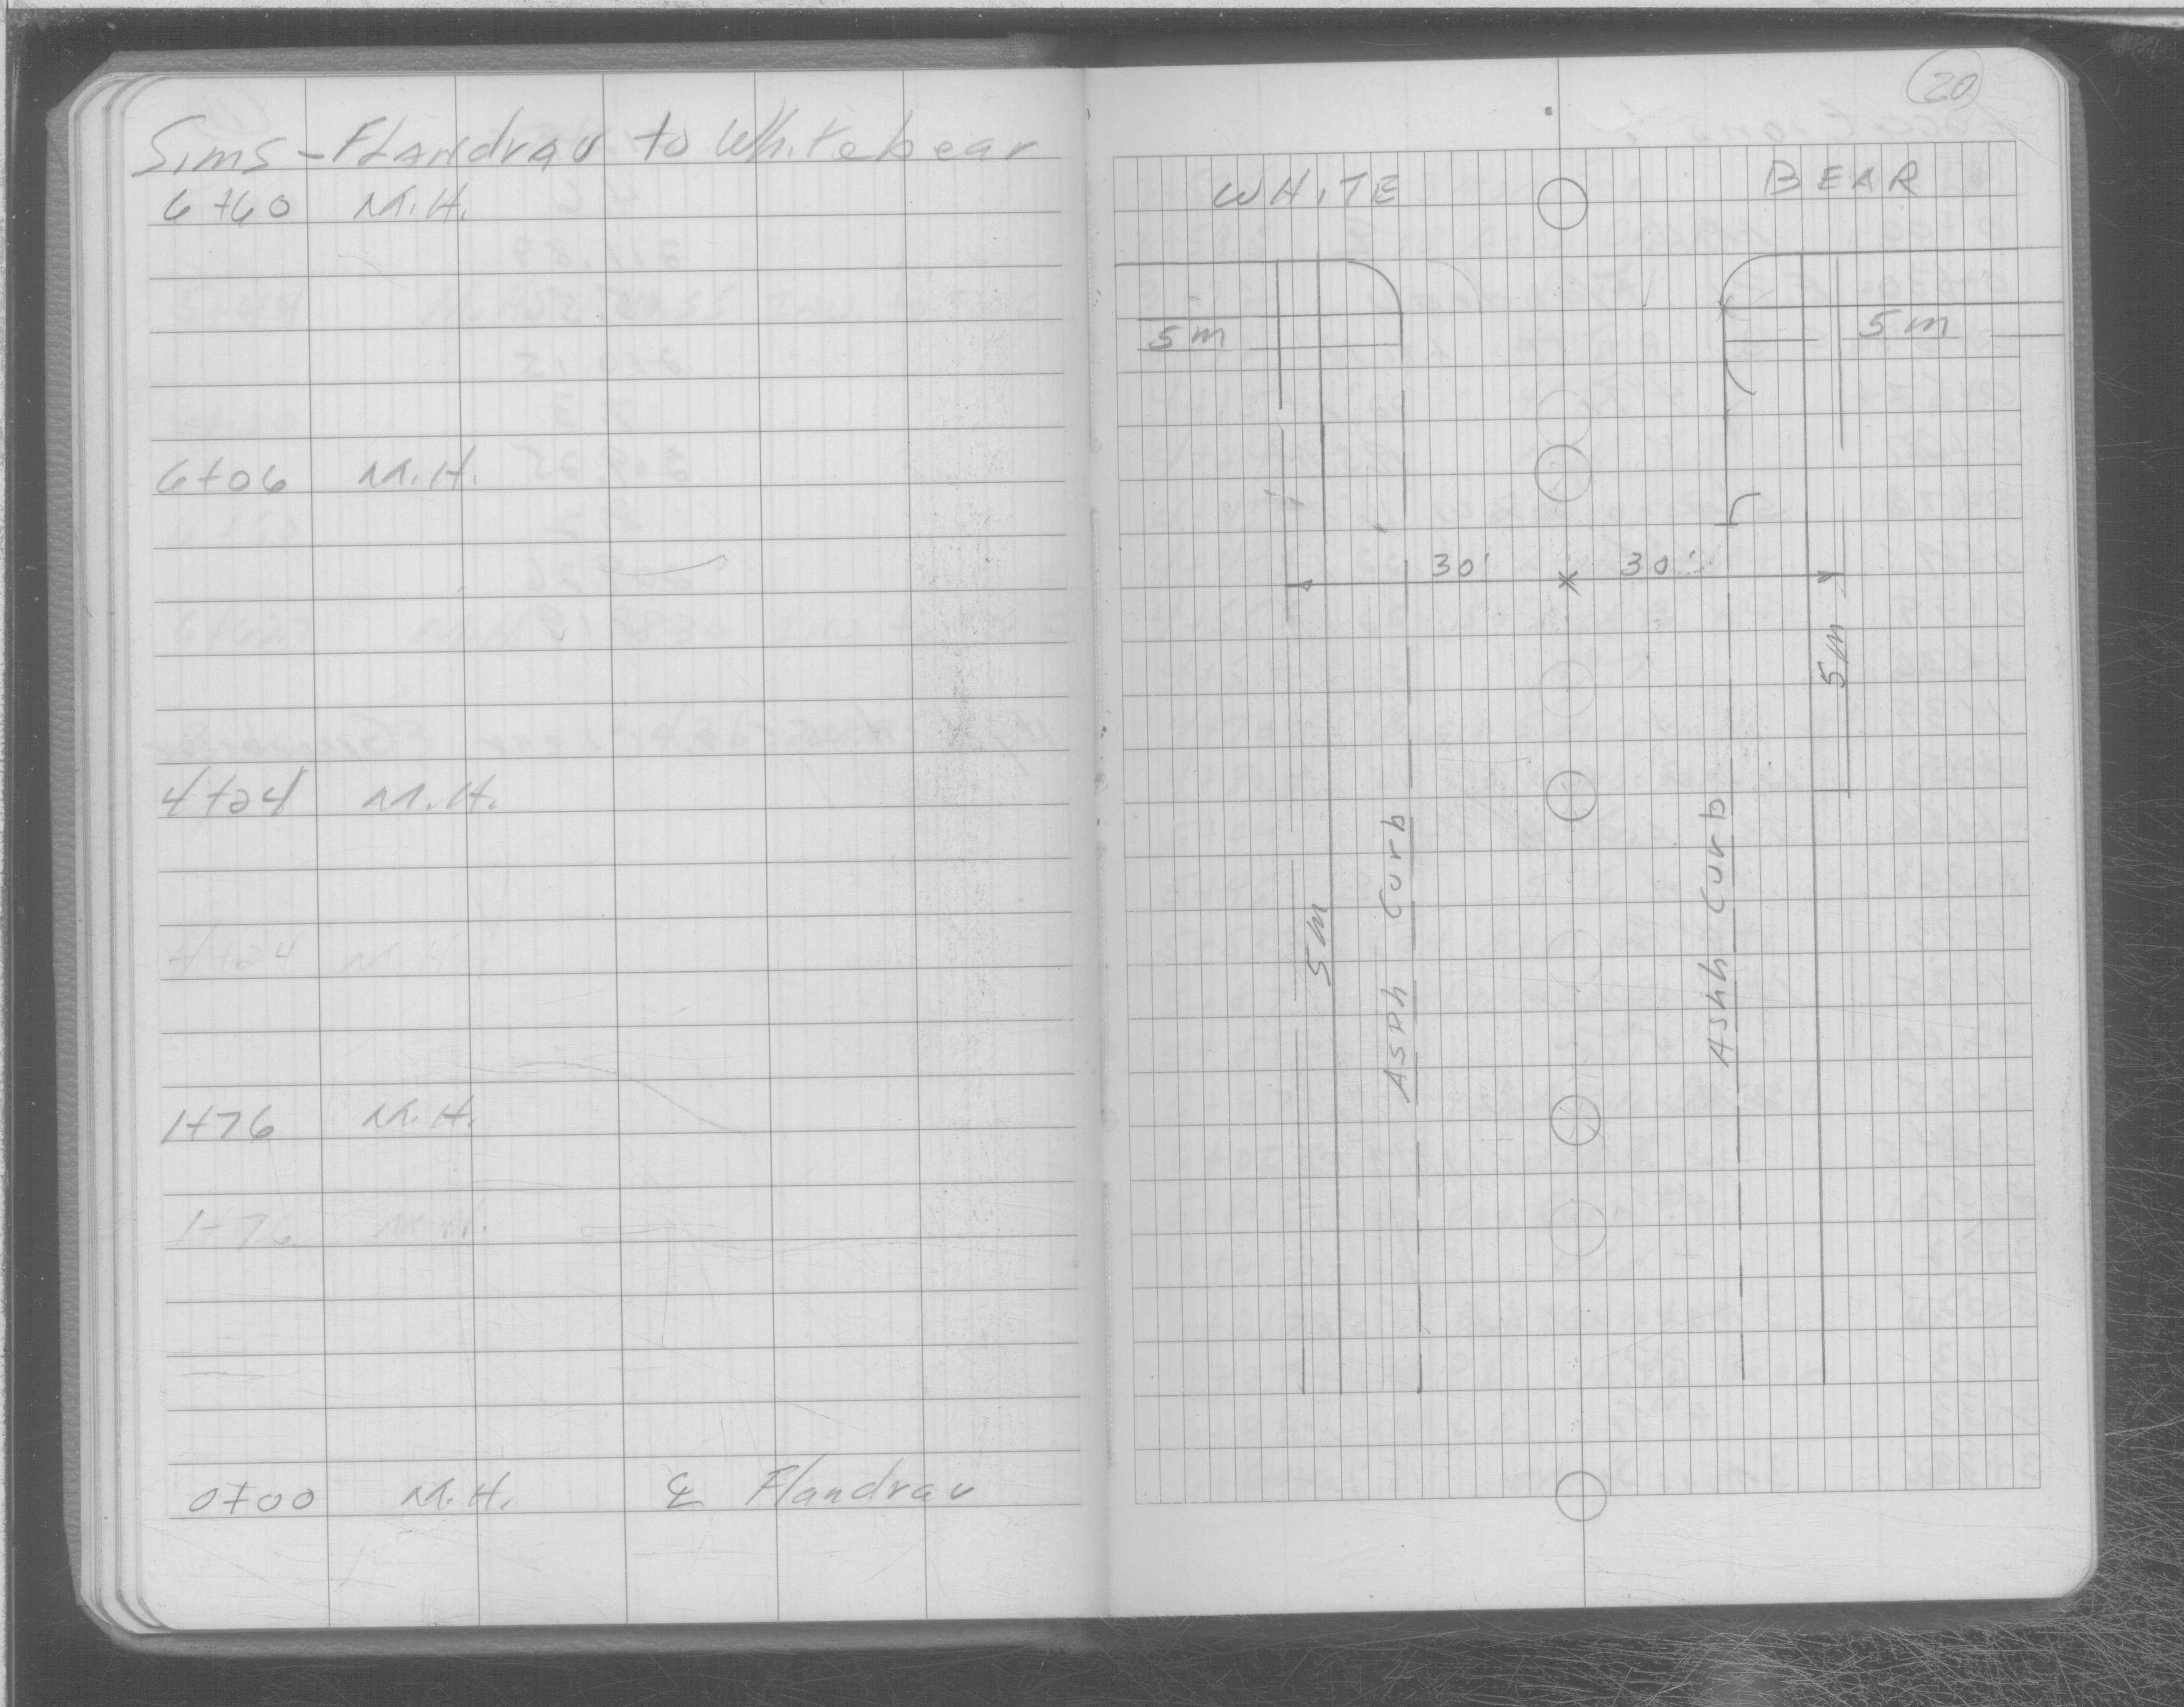 Sims - Flandrau to Whitebear
6+60 M.H.
6+06 M.H.
4+24 M.H.
4+24 M.H.
1+76 M.H.
1+76 M.H.
0+00 M.H. ℄ Flandrau
20
WHITE BEAR
5m 5m
30' 30'
5m
Asph Curb
Ashh Curb
5m